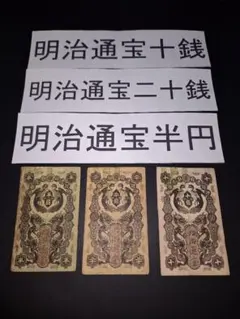 明治通宝十銭
明治通宝二十銭
明治通宝半円